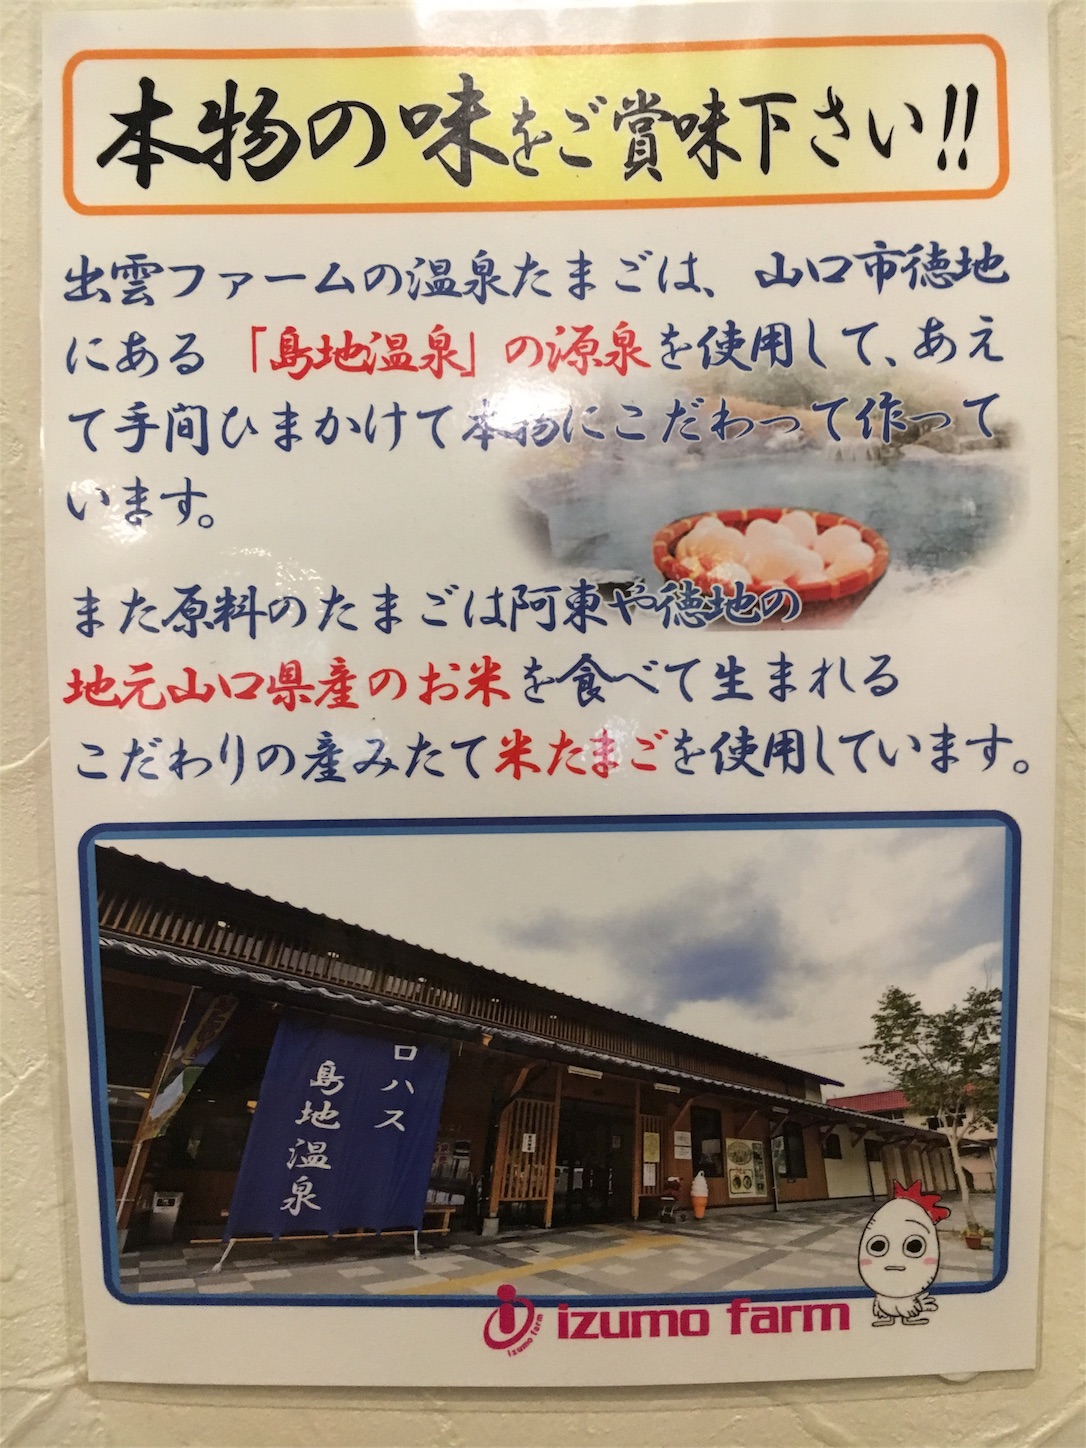 本物の味をご賞味下さい!!
出雲ファームの温泉たまごは、山口市徳地
にある「島地温泉」の源泉を使用して、あえ
て手間ひまかけて本物にこだわって作って
います。
また原料のたまごは阿東や徳地の
地元山口県産のお米を食べて生まれる
こだわりの産みたて米たまごを使用しています。
ロハス
島地温泉
izumo farm
izumo farm